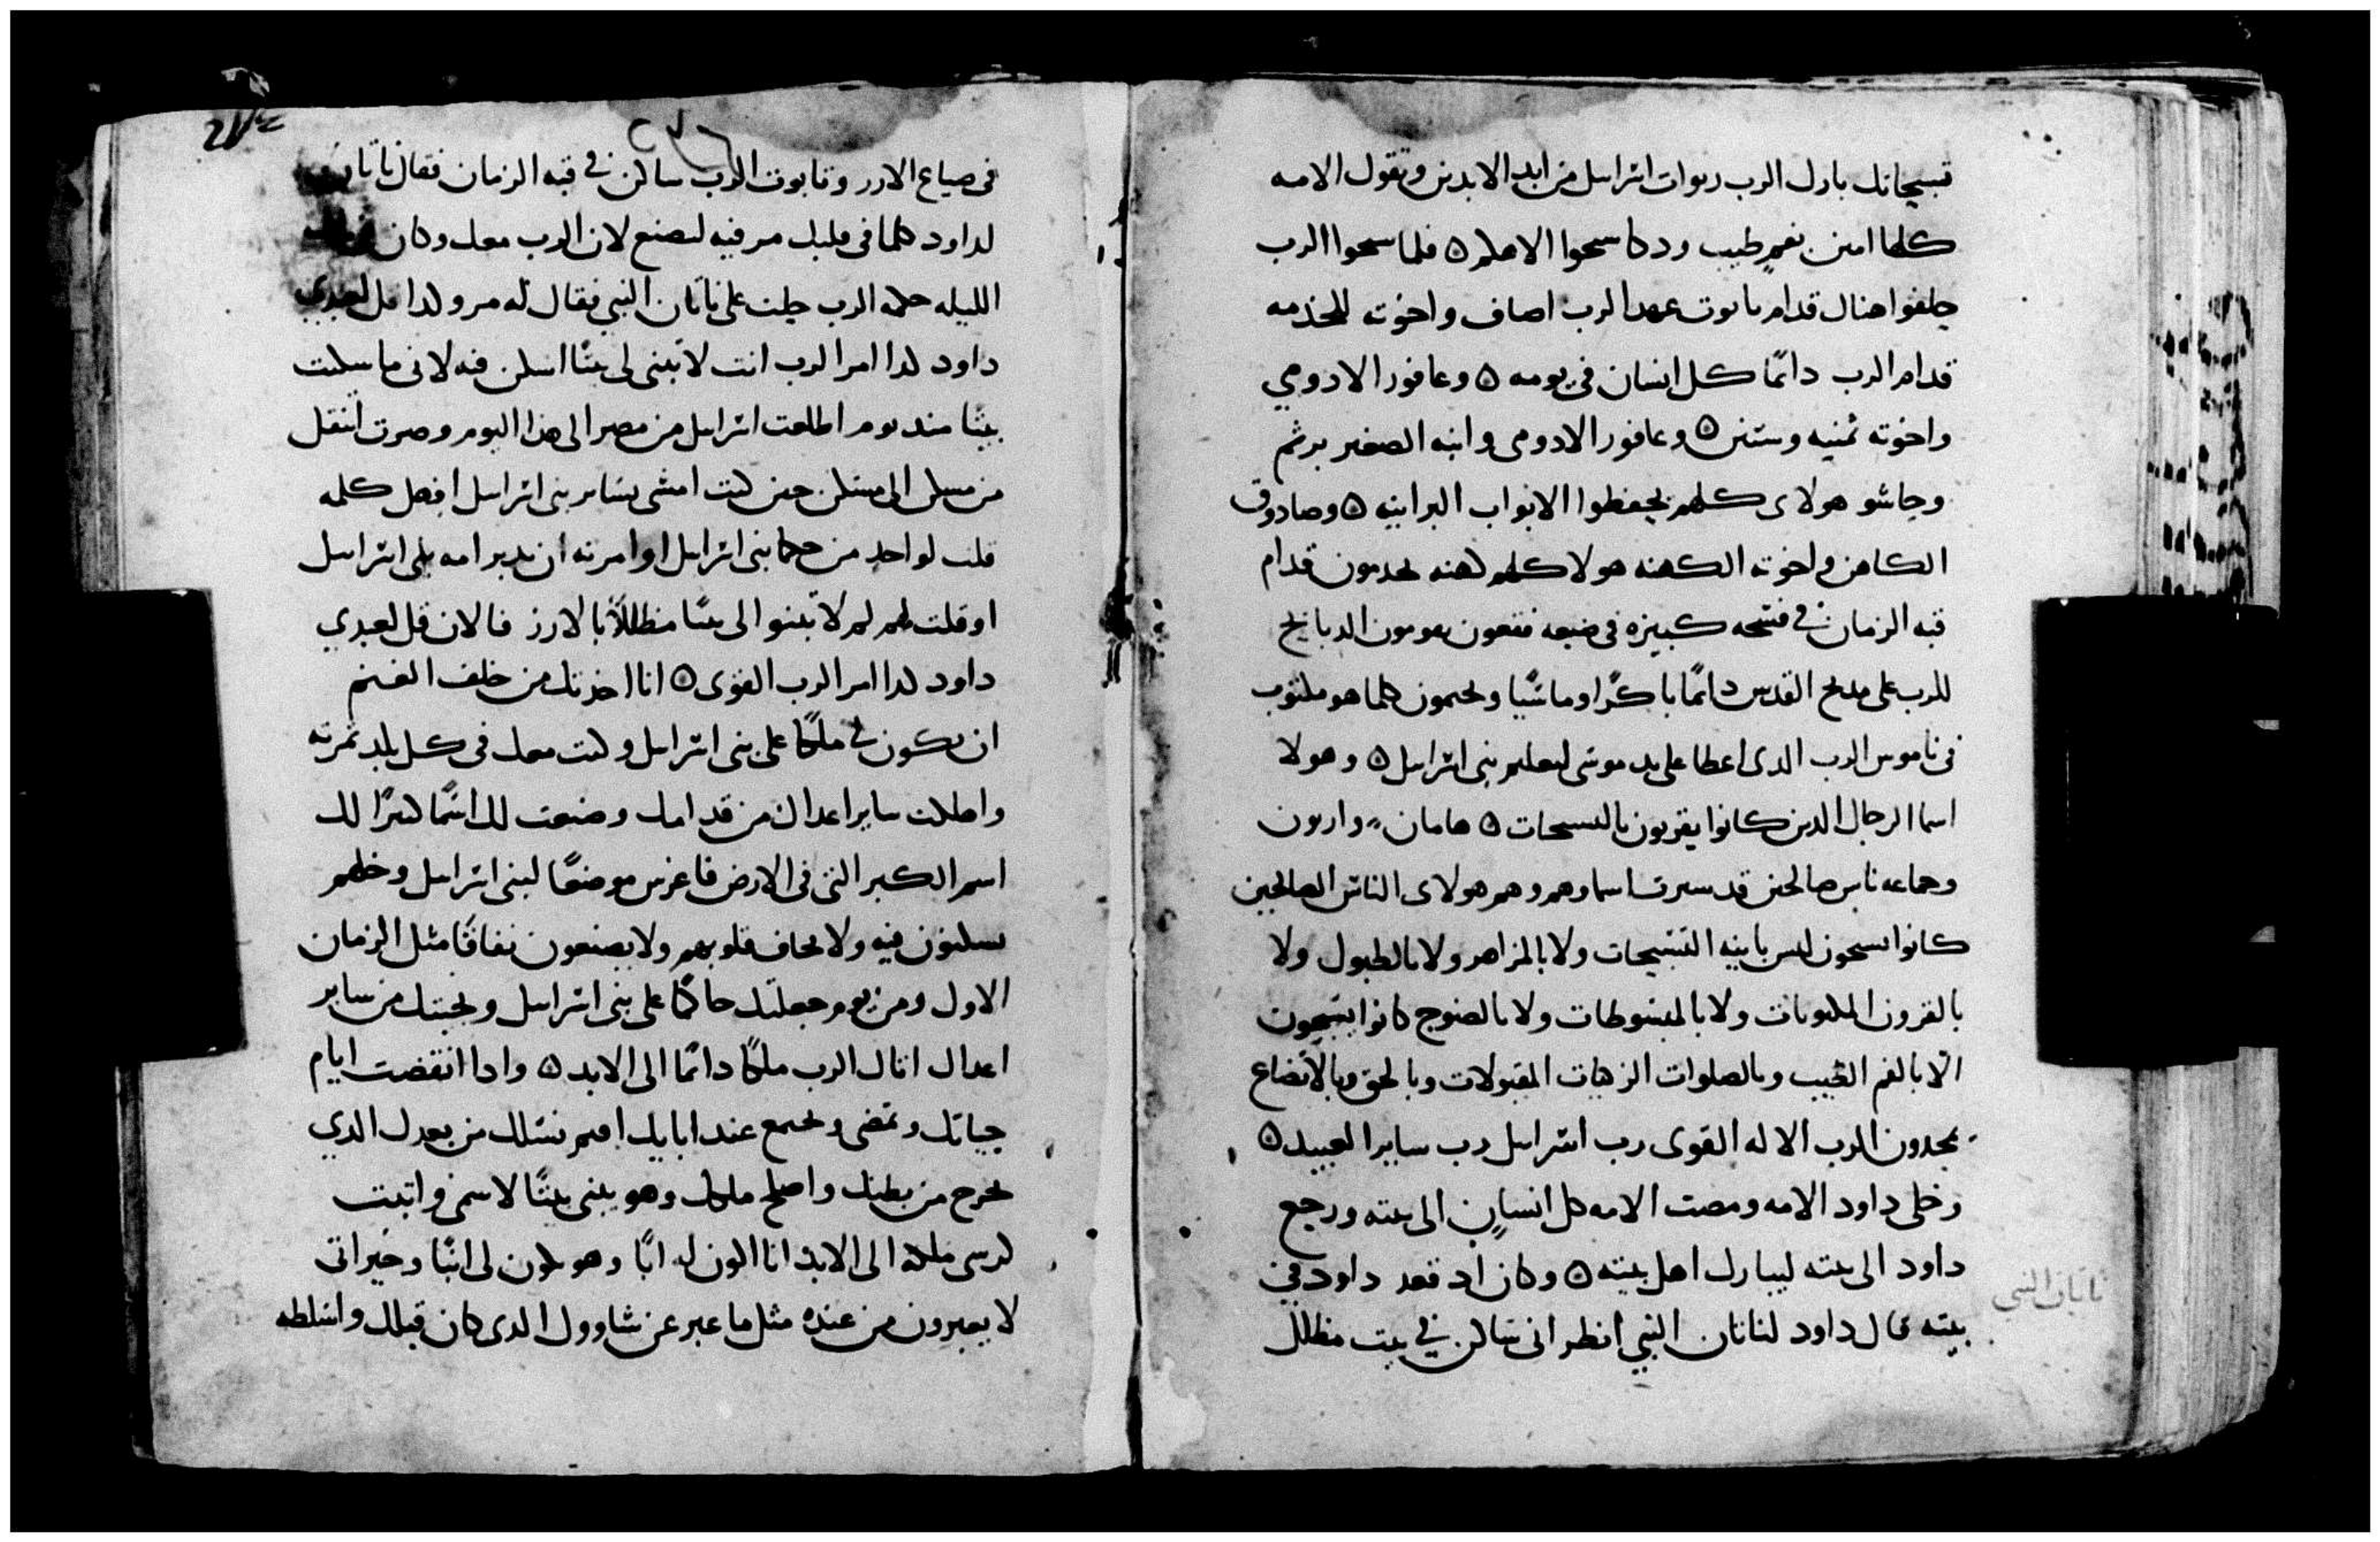 تسبيحاتك بارك الرب ربوات اسراىيل من ابد الابدين وتقول الامه
كلها امين نعم طيب وردكا سبحوا الاهكم ٥ فلما سبحوا الرب
خلفوا هناك قدام تابوت عهد الرب اصاف واخوته للخدمه
قدام الرب دائمًا كل انسان في يومه ٥ وعافور الادومي
واخوته ثمنيه وستين ٥ وعافور الادومي وابنه الصغير برثم
وحاسو هولاي كلهم يحفظوا الابواب البرانيه ٥ وصادوق
الكاهن واخوته الكهنه هولا كلهم كهنه يخدمون قدام
قبه الزمان في فتحه كبيره في ضيعه فقعون يقومون الدبايح
للرب على مدبح القدس دائمًا باكرًا وماسيا ويختمون كلما هو مكتوب
في ناموس الرب الدي اعطا على يد موسى ليعلم بني اسرايل ٥ وهولا
اسما الرجال الدين كانوا يقربون بالتسبيحات ٥ هامان واربون
وجماعه ناس صالحين قد سيرت اسماوهم وهم هولاي الناس الصالحين
كانوا يسبحون ليس بابنيه التسبيحات ولا بالمزاهر ولا بالطبول ولا
بالقرون الملتويات ولا بالمبسوطات ولا بالصنوج كانوا يسبحون
الا بالفم الطيب وبالصلوات الزهيات المقبولات وبالحق وبالاتضاع
يمجدون الرب الاله القوي رب اسرايل رب ساير العبيد ٥
وخلى داود الامه ومضت الامه كل انسان الى بيته ورجع
داود الى بيته ليبارك اهل بيته ٥ وكان اد قعد داود في
بيته قال داود لناتان النبي انظر اني ساكن في بيت مظلل
ناتان النبي
في صياع الارز وتابوت الرب ساكن في قبه الزمان فقال ناتان
لداود كلما في قلبك مر فيه لتصنع لان الرب معك وكان
الليله كلمه الرب حلت على ناتان النبي فقال له مر وكدا قل لعبدي
داود كدا امر الرب انت لا تبني لي بيتًا اسكن فيه لاني ما سكنت
بيتًا مند يوم اطلعت اسرايل من مصر الى هدا اليوم وصرت انتقل
من مسكن الى مسكن حين كنت امشي بساير بني اسرايل افصل كلمه
قلت لواحد من حكما بني اسرايل او امرته ان يدبر امه بني اسرايل
او قلت لهم لم لا تبنوا لي بيتًا مظللًا بالارز فالان قل لعبدي
داود كدا امر الرب القوي ٥ انا اخدتك من خلف الغنم
ان تكون لي ملكًا على بني اسرايل وكنت معك في كل بلد تمرته
واهلكت ساير اعداك من قدامك وصنعت لك اسمًا كبيرًا لك
اسم الكبير التي في الارض فاغرس موضعًا لبني اسرايل وخلهم
يسكنون فيه ولا يخاف قلوبهم ولا يصنعون نفاقًا مثل الزمان
الاول ومن يوم جعلتك حاكمًا على بني اسرايل ونجيتك من ساير
اعداك اناك الرب ملكًا دائمًا الى الابد ٥ وادا انقضت ايام
حياتك وتمضي وتجتمع عند ابايك اقيم نسلك من بعدك الدي
يخرج من بطنك واصلح ملكك وهو يبني بيتًا لاسمي واتبت
كرسي ملكه الى الابد انا اكون له ابًا وهو يكون لي ابنًا وخيراتي
لا يعبرون من عنده مثل ما عبر عن شاوول الدي كان قبلك واسلطه